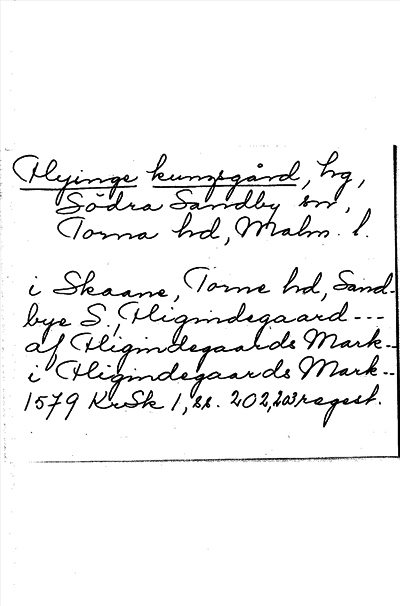 Flyinge kungsgård, hg,
Södra Sandby sn,
Torna hd, Malm. l.
i Skaane, Torne hd, Sand-
bye S., Fligindegaard ---
af Fligindegaards Mark--
i Fligindegaards Mark--
1579 KrSk 1, ss. 202, 203 regest.